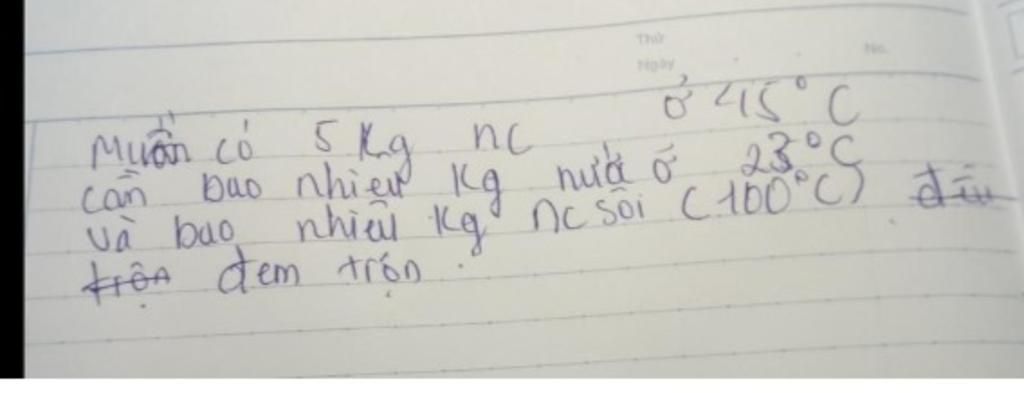 Thứ
No.
Ngày
Muốn có 5 Kg nc ở 45°C
cần bao nhiêu Kg nước ở 23°C
và bao nhiêu Kg nc sôi (100°C) đều
trộn đem trộn.